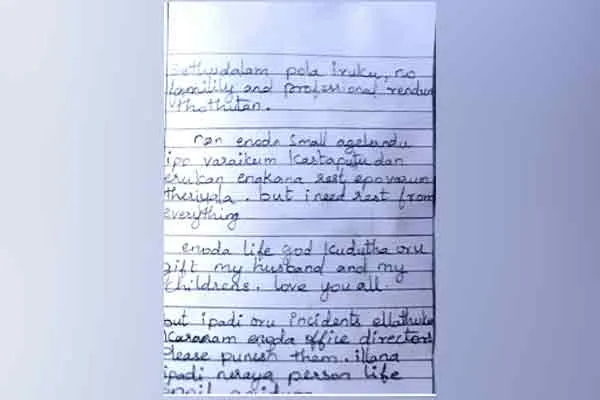 pola iruku, no
family and professional rendum
thothutan.
nan enoda small agelandu
ipo varaikum kastaputudan
erukan enakana rest epo varum
theriyala. but i need rest from
everything
enoda life god kudutha oru
gift my husband and my
childrens. love you all.
but ipadi oru incidents ellathuku
karanam enoda office directors
Please punish them. illana
ipadi neraya person life